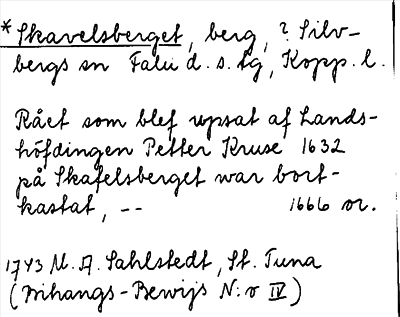 *Skavelsberget, berg, ? Silv-
bergs sn Falu d. s. tg, Kopp. l.
Rået som blef upsat af Lands-
höfdingen Petter Kruse 1632
på Skafelsberget war bort-
kastat, -- 1666 or.
1743 M. A. Sahlstedt, St. Tuna
(Bihangs-Bewijs N:o IV)